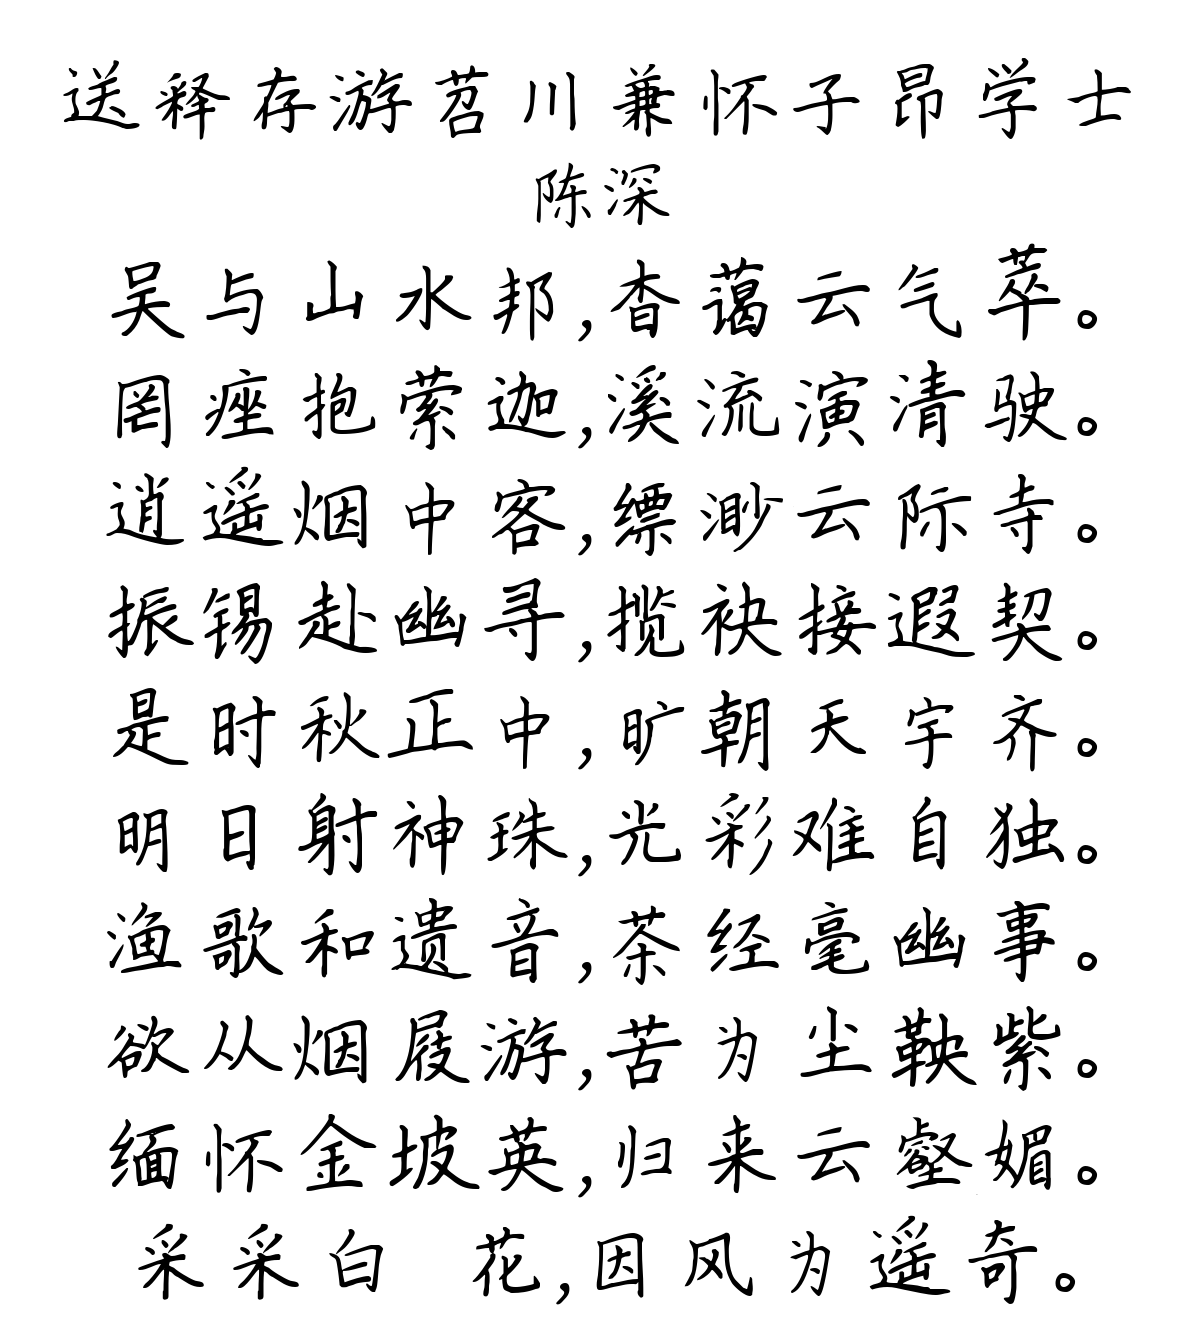 送释存游苕川兼怀子昂学士
陈深
吴与山水邦,杳蔼云气萃。
罔痤抱萦迦,溪流演清驶。
逍遥烟中客,缥渺云际寺。
振锡赴幽寻,揽袂接遐契。
是时秋正中,旷朝天宇齐。
明日射神珠,光彩难自独。
渔歌和遗音,茶经毫幽事。
欲从烟屐游,苦为尘鞅紫。
缅怀金坡英,归来云壑媚。
采采白 花,因风为遥奇。